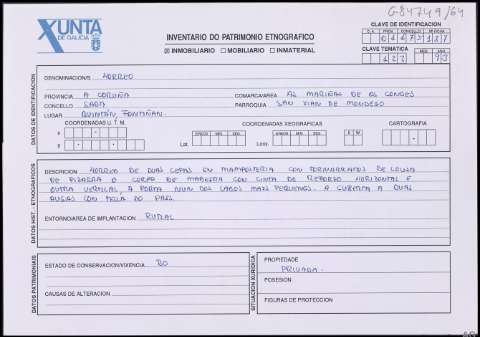 G84749/64
XUNTA
DE GALICIA
INVENTARIO DO PATRIMONIO ETNOGRAFICO
☒ INMOBILIARIO ☐ MOBILIARIO ☐ INMATERIAL
CLAVE DE IDENTIFICACION
CLAVE TEMATICA
DATOS DE IDENTIFICACION
DENOMINACIONS HORREO
PROVINCIA A CORUÑA
COMARCA/AREA AS MARIÑAS DE OS CONDES
CONCELLO SADA
PARROQUIA SAN XIAN DE MONDEGO
LUGAR QUINTÁN, FONTIÑÁN
COORDENADAS U.T.M.
COORDENADAS XEOGRAFICAS
CARTOGRAFIA
DATOS HIST. - ETNOGRAFICOS
DESCRICION HORREO DE DUAS CEPAS EN MAMPOSTERIA CON TORNARRATOS DE LOUSA
DE PIZARRA O CORPO DE MADEIRA CON CINTA DE REFORZO HORIZONTAL E
OUTRA VERTICAL, A PORTA NUN DOS LADOS MAIS PEQUENOS. A CUBERTA A DUAS
AUGAS CON TELLA DO PAIS.
ENTORNO/AREA DE IMPLANTACION RURAL
DATOS PATRIMONIAIS
ESTADO DE CONSERVACION/VIXENCIA BO
CAUSAS DE ALTERACION
SITUACION XURIDICA
PROPIEDADE
PRIVADA
POSESION
FIGURAS DE PROTECCION